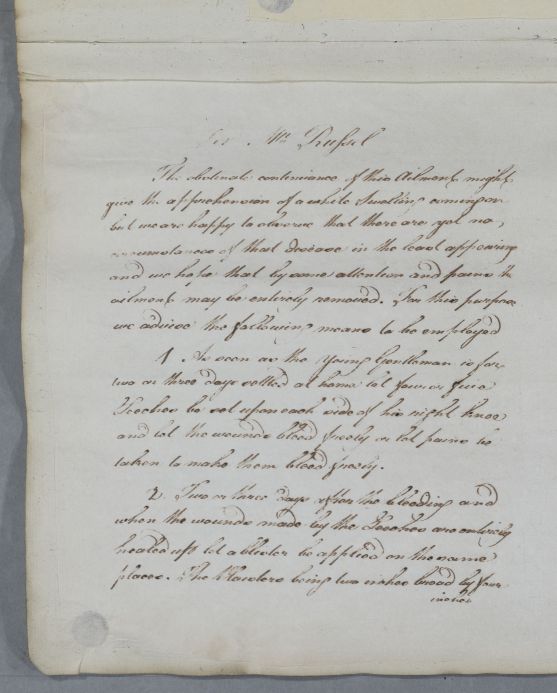 For Mr. Russel
The obstinate continuance of this Ailment might
give the apprehension of a white Swelling coming on
but we are happy to observe that there are yet no
circumstances of that disease in the least appearing
and we hope that by some attention and pains the
ailment may be entirely removed. For this purpose
we advise the following means to be employed
1. As soon as the Young Gentleman is for
two or three days settled at home let four or five
Leeches be set upon each side of his right knee
and let the wounds bleed freely or let pains be
taken to make them bleed freely.
2. Two or three days after the bleeding and
when the wounds made by the Leeches are entirely
healed up let a blister be applied on the same
places. The Plaisters being two inches broad by four
inches